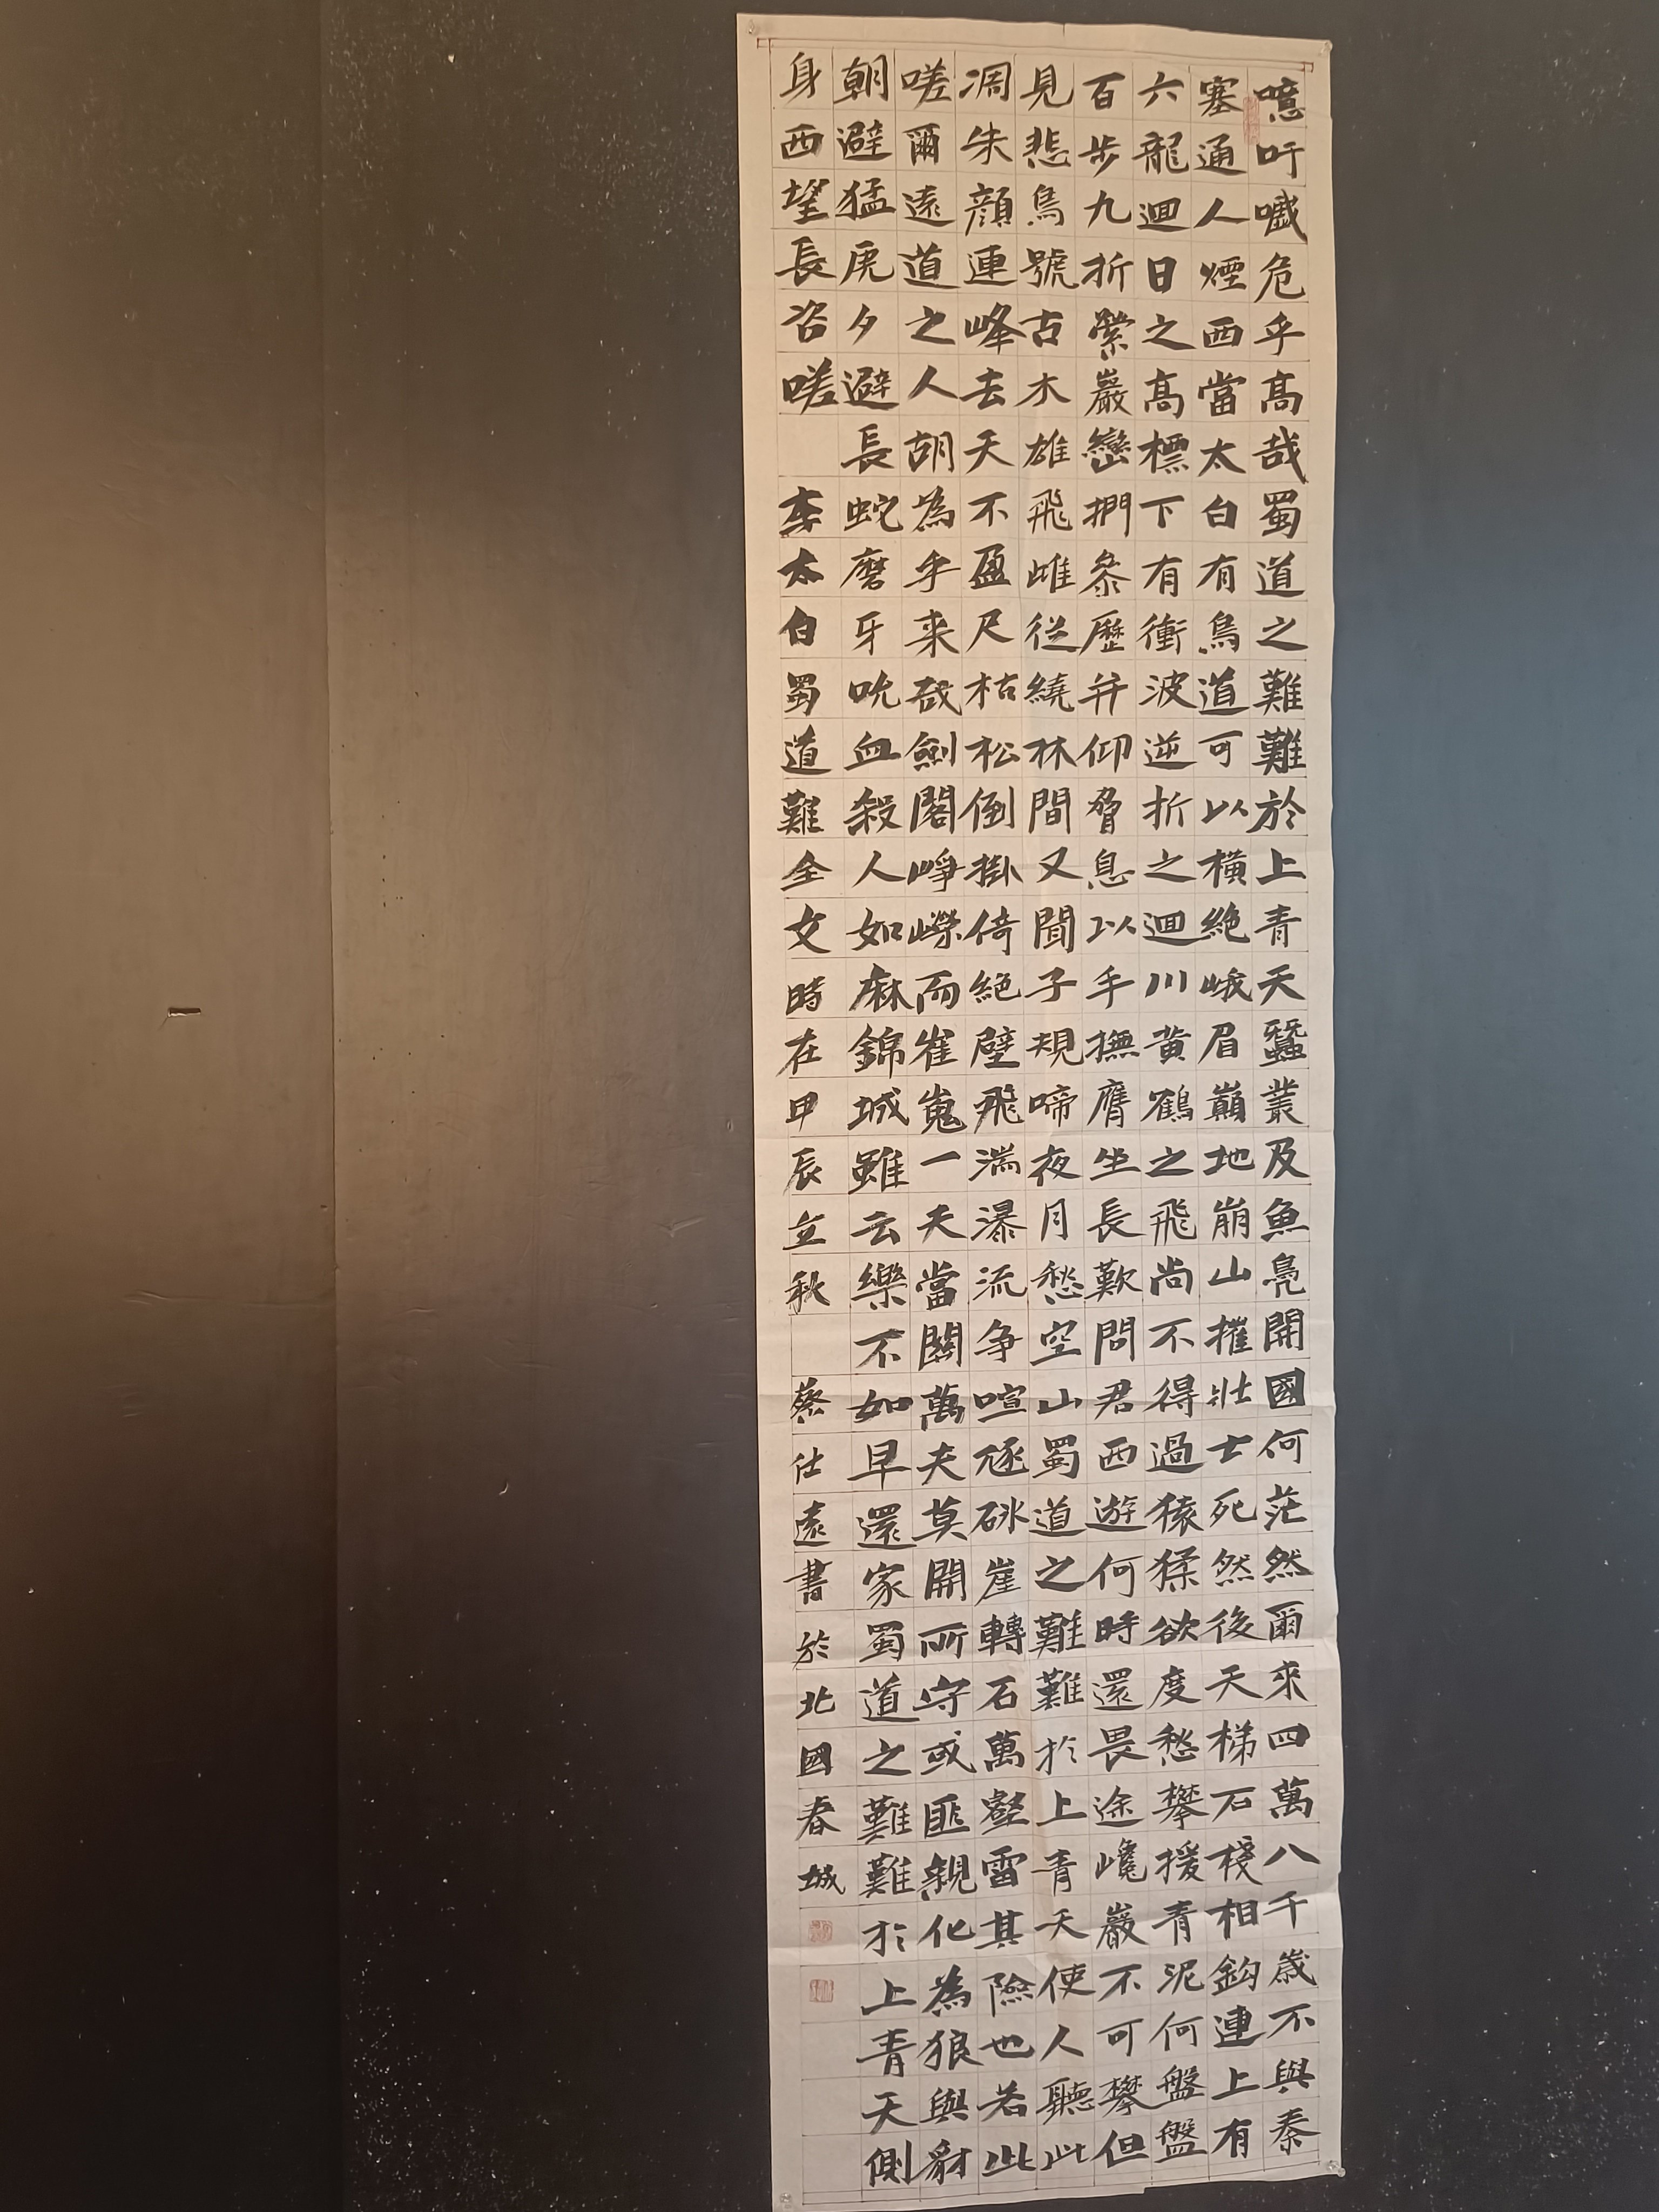 噫吁嚱危乎高哉蜀道之難難於上青天蠶叢及魚鳧開國何茫然爾來四萬八千歲不與秦
塞通人煙西當太白有鳥道可以橫絕峨眉巔地崩山摧壯士死然後天梯石棧相鈎連上有
六龍迴日之高標下有衝波逆折之迴川黃鶴之飛尚不得過猿猱欲度愁攀援青泥何盤盤
百步九折縈巖巒捫參歷井仰脅息以手撫膺坐長歎問君西遊何時還畏途巉巖不可攀但
見悲鳥號古木雄飛雌從繞林間又聞子規啼夜月愁空山蜀道之難難於上青天使人聽此
凋朱顏連峰去天不盈尺枯松倒掛倚絕壁飛湍瀑流爭喧豗砯崖轉石萬壑雷其險也若此
嗟爾遠道之人胡為乎來哉劍閣崢嶸而崔嵬一夫當關萬夫莫開所守或匪親化為狼與豺
朝避猛虎夕避長蛇磨牙吮血殺人如麻錦城雖云樂不如早還家蜀道之難難於上青天側
身西望長咨嗟 李太白蜀道難全文時在甲辰立秋 蔡仕遠書於北國春城